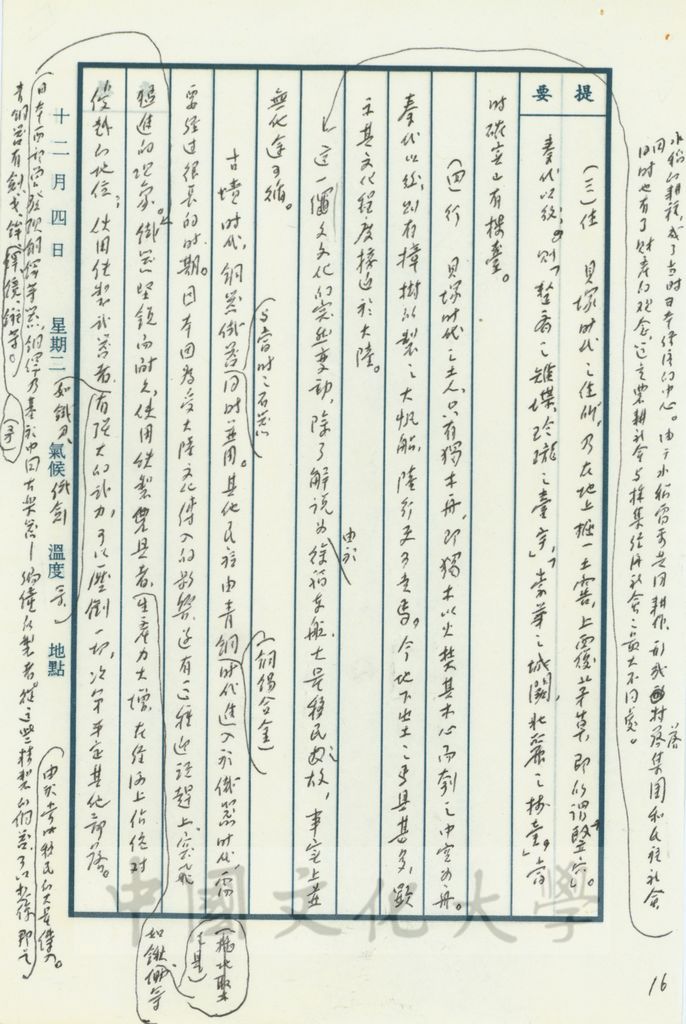 水稻的耕種,成了當時日本經濟的中心。由于水稻需要共同耕作,形成村落集團和氏族社會
同時也有了財產的觀念,這是農耕社會與採集經濟社會之最大不同處。
提要
(三)住 貝塚時代之住所,乃在地上掘一土窖,上面覆以茅草,即所謂豎穴。
秦代以後,則「整齊之雉堞,玲瓏之臺宇」,「崇華之城闕,壯麗之樓臺」,當
時確實已有樓臺。
(四)行 貝塚時代之土人,只有獨木舟,即獨木以火焚其木心而刳之中空為舟。
秦代以後,則有樟樹所製之大帆船,陸行更可走馬,今地下出土之馬具甚多,顯
示其文化程度接近於大陸。
這一個文化的突然變動,除了解說為由於徐福東船大量移民之故,事實上並
無他途可循。
古墳時代,銅器鐵器與當時之石器同時並用。其他民族由青銅(銅錫合金)時代進入於鐵器時代,需
要經過很長的時期。日本因為受大陸文化傳入的影響,遂有這種迎頭趕上突飛
猛進的現象。鐵器堅銳而耐久,使用鐵製農具者,生產力大增,在經濟上佔絕對
優越的地位;使用鐵製武器者,有強大的武力,可以壓倒一切,次第平定其他部落。
(一種地聚之是)
如鐵鋤等
十二月四日 星期二 氣候 溫度 地點
如鐵刀、鐵劍等
(日本西部而出發現銅鐸等器,銅鐸乃基於中國古樂器—編鐘所製者。從這些精製的銅器可以知係即是
由於當時移民的大量傳入。
青銅器有劍、戈、鉾、鐸、鏡、鏃等。
16
中國文化大學